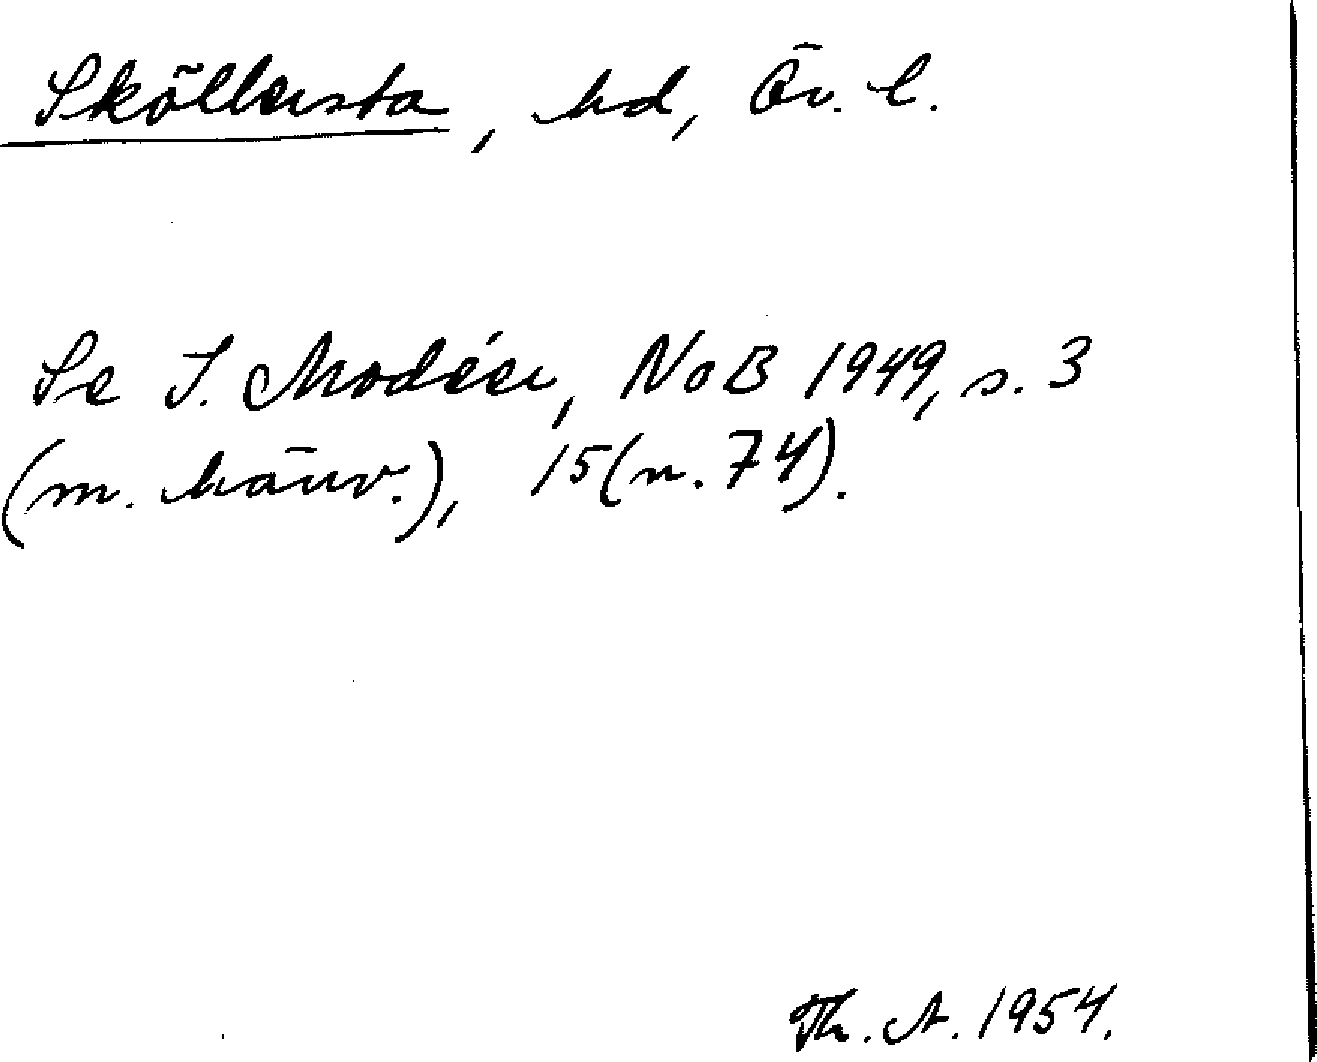 Sköllersta, hd, Öv. l.
Se I. Modéer, NoB 1949, s. 3
(m. hänv.), 15(n. 74).
Th. A. 1954.